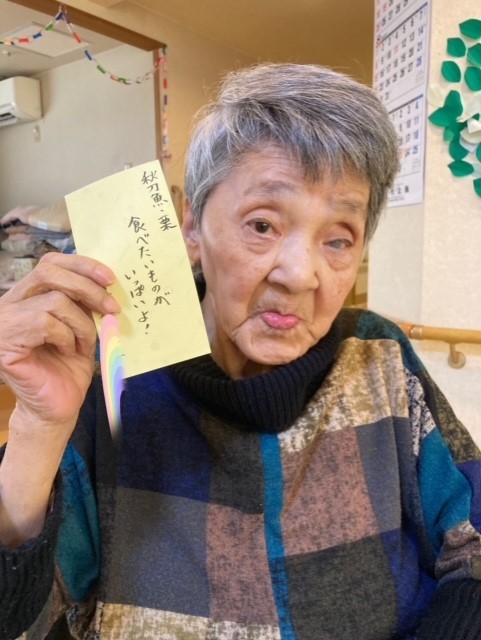 秋刀魚・栗
食べたいものが
いっぱいよ!